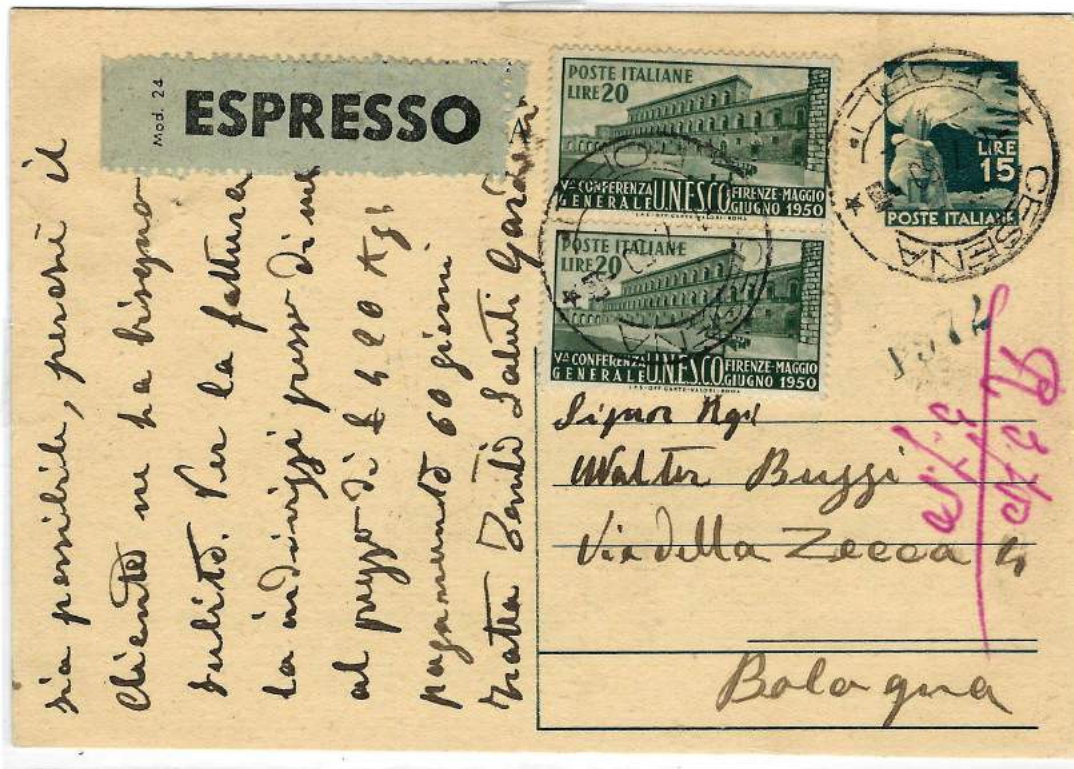 Mod. 24
ESPRESSO
POSTE ITALIANE
LIRE 20
Vª CONFERENZA GENERALE U.N.E.S.C.O. FIRENZE-MAGGIO GIUGNO 1950
POSTE ITALIANE
LIRE 20
Vª CONFERENZA GENERALE U.N.E.S.C.O. FIRENZE-MAGGIO GIUGNO 1950
LIRE
15
POSTE ITALIANE
CESENA
sia possibile, perchè il
Cliente ne ha bisogno
subito. Per la fattura
la indirizzi presso di me
al prezzo di £ 420 Kg.
pagamento 60 giorni
tratta Tanti Saluti
Signor Rag
Walter Buggi
Via della Zecca 4
Bologna